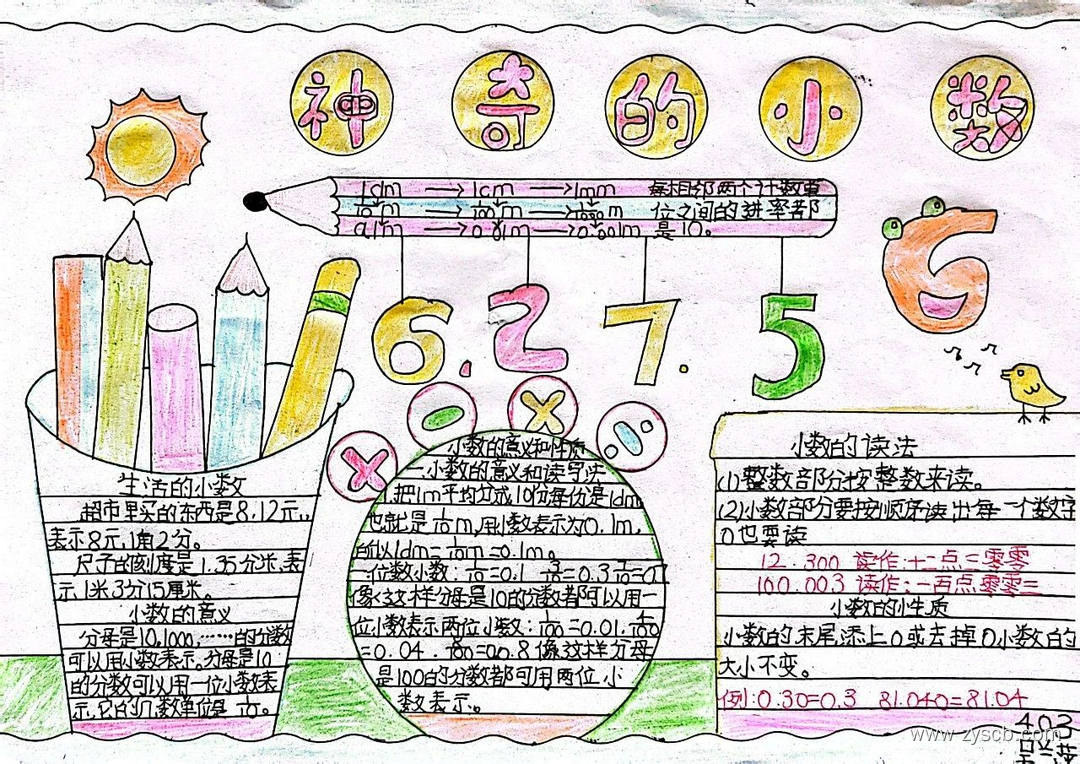 神奇的小数
1dm → 1cm → 1mm 每相邻两个计数单
1/10m → 1/100m → 1/1000m 位之间的进率都
0.1m → 0.01m → 0.001m 是10。
6.27.5
6
生活的小数
超市里买的东西是8.12元,
表示8元,1角2分。
尺子的刻度是1.35分米,表
示1米3分15厘米。
小数的意义
分母是10,1000,……的分数
可以用小数表示,分母是10
的分数可以用一位小数表
示,它的几数单位是1/10。
小数的意义和性质
一小数的意义和读写法
1.把1m平均分成10份每份是1dm
也就是1/10m,用小数表示为0.1m,
所以1dm=1/10m=0.1m。
一位数小数:1/10=0.1 3/10=0.3
像这样分母是10的分数都可以用一
位小数表示两位小数:1/100=0.01.4/100
=0.04. 8/100=00.8像这样分母
是100的分数都可用两位小
数表示。
小数的读法
(1)整数部分按整数来读。
(2)小数部分要按顺序读出每一个数字
0也要读
12.300 读作:十二点三零零
160.003 读作:一百点零零三
小数的小性质
小数的末尾添上0或去掉0小数的
大小不变。
例:0.30=0.3 81.040=81.04
403
www.zyscb.com